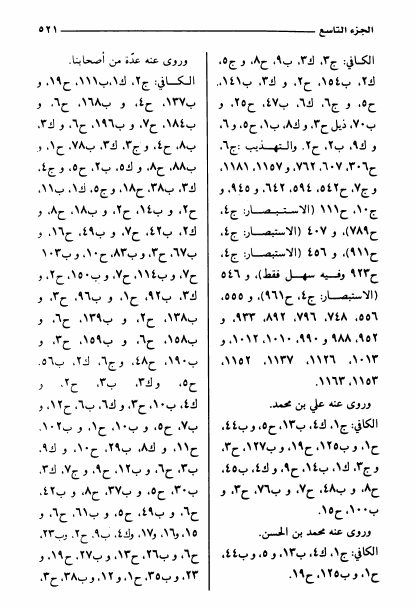 الجزء التاسع ــــــــــــ ٥٢١
الكافي: ج٣، ك٣، ب٩، ح٨، و ج٥،
ك٢، ب١٥٤، ح٢، و ك٣، ب١٤١،
ح٥، و ج٦، ك٦، ب٤٧، ح٢٥، و
ب٧٠، ذيل ح٣، و ك٨، ب١، ح٥، و٦،
و ك٩، ب٢، ح٢. والتهذيب: ج٦،
ح٣٠٦، ٦٠٧، ٧٦٢، و ١١٥٧، ١١٨١،
و ج٧، ح٥٤٢، ٥٩٤، ٦٤٢، و ٩٤٥، و
ج١٠، ح١١١ (الاستبصار: ج٤،
ح٧٨٩)، و ٤٠٧ (الاستبصار: ج٤،
ح٩١١)، و ٤٥٦ (الاستبصار: ج٤،
ح٩٢٣ وفيه سهل فقط)، و ٥٤٦
(الاستبصار: ج٤، ح٩٦١)، و ٥٥٥،
٥٥٦، ٧٤٨، ٧٩٦، ٨٩٢، ٩٣٣، و
٩٥٢، ٩٨٨ و ٩٩٠، ١٠١٠، ١٠١٢، و
١٠١٣، ١١٢٦، ١١٣٧، ١١٥٢،
١١٥٣، ١١٦٣.
وروى عنه علي بن محمد.
الكافي: ج١، ك٤، ب١٣، ح٥، و ب٤٤،
ح١، و ب١٢٥، ح١٩، و ب١٢٧، ح٣،
و ج٣، ك١، ب١٤، ح٩، و ك٤، ب٤٥،
ح٨، و ب٤٨، ح٧، و ب٧٦، ح٣، و
ب١٠٠، ح١٥.
وروى عنه محمد بن الحسن.
الكافي: ج١، ك٤، ب١٣، و ٥، و ب٤٤،
ح١، و ب١٢٥، ح١٩.
وروى عنه عدّة من أصحابنا.
الكافي: ج٢، ك١، ب١١١، ح١٩، و
ب١٣٧، ح٤، و ب١٦٨، ح٦، و
ب١٨٤، ح٧، و ب١٩٦، ح٦، و ك٣،
ب٨، ح٤، و ج٣، ك٣، ب٧٨، ح١، و
ب٨٨، ح٨، و ك٥، ب٢، ح٥، و ج٤،
ك٣، ب٣٨، ح١٨، و ج٥، ك١، ب١١،
ح٢، و ب١٤، ح٢، و ب١٨، ح٨، و
ك٢، ب٤٢، ح٧، و ب٤٩، ح١٦، و
ب٦٧، ح٣، و ب٨٣، ح١٠، و ب١٠٣،
ح٧، و ب١١٤، ح٧، و ب١٥٠، ح٢، و
ك٣، ب٩٢، ح١، و ب٩٦، ح٣، و
ب١٣٨، ح٢، و ب١٣٩، ح٦، و
ب١٥٨، ح٦، و ب١٥٩، ح٣، و
ب١٩٠، ح٤٨، و ج٦، ك٢، ب٥٦،
ح٥، و ك٣، ب٣، ح٢، و
ك٤، ب١٠، ح٣، و ك٦، ب٦، ح١٢، و
ب٧، ح٥، و ب١٠، ح١، و ب١٠٢،
ح١١، و ك٨، ب٢٩، ح١٠، و ك٩،
ب٣، ح٦، و ب١٢، ح٩، و ج٧، ك٣،
ب٣٠، ح٥، و ب٣٧، ح٨، و ب٤٢،
ح٦، و ب٤٩، ح٥، و ب٦١، ح٦، و
١٥، و١٦، و١٧، و ك٤، ب٩، ح٢، و ب٢٣،
ح٦، و ب٢٦، ح١٣، و ب٢٧، ح١٩، و
٢٣، و ب٣٥، ح١، و ١٢، و ب٣٨، ح٣،